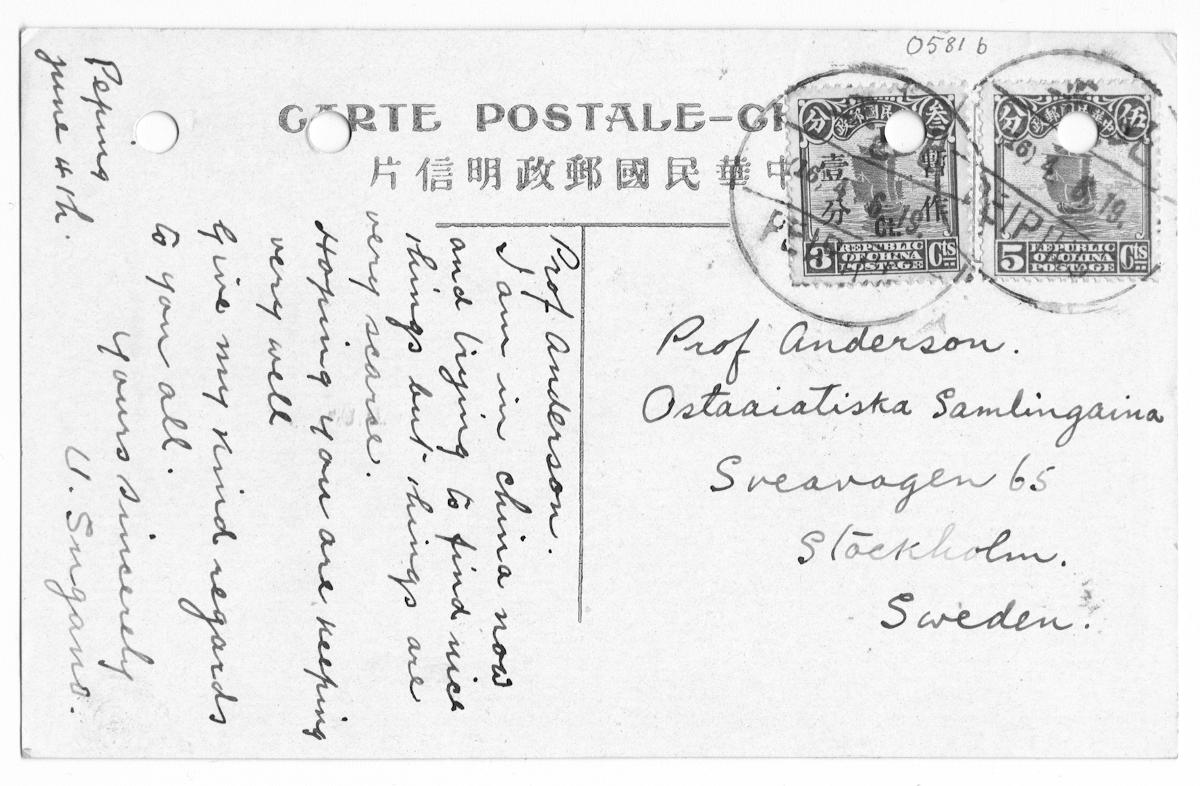 0581 b
CARTE POSTALE-CH
中華民國郵政明信片
分 中華民國郵政 叁
暫作
壹分
1 Ct.
3 REPUBLIC OF CHINA POSTAGE Cts
分 中華民國郵政 伍
5 REPUBLIC OF CHINA POSTAGE Cts
PEIPING
Peping
june 4th.
Prof Anderson.
I am in china now
and trying to find nice
things but things are
very scarse.
Hoping you are keeping
very well
Give my kind regards
to you all.
yours sincerely
U. Sugano.
Prof Anderson.
Ostaaiatiska Samlingaina
Sveavagen 65
Stockholm.
Sweden.